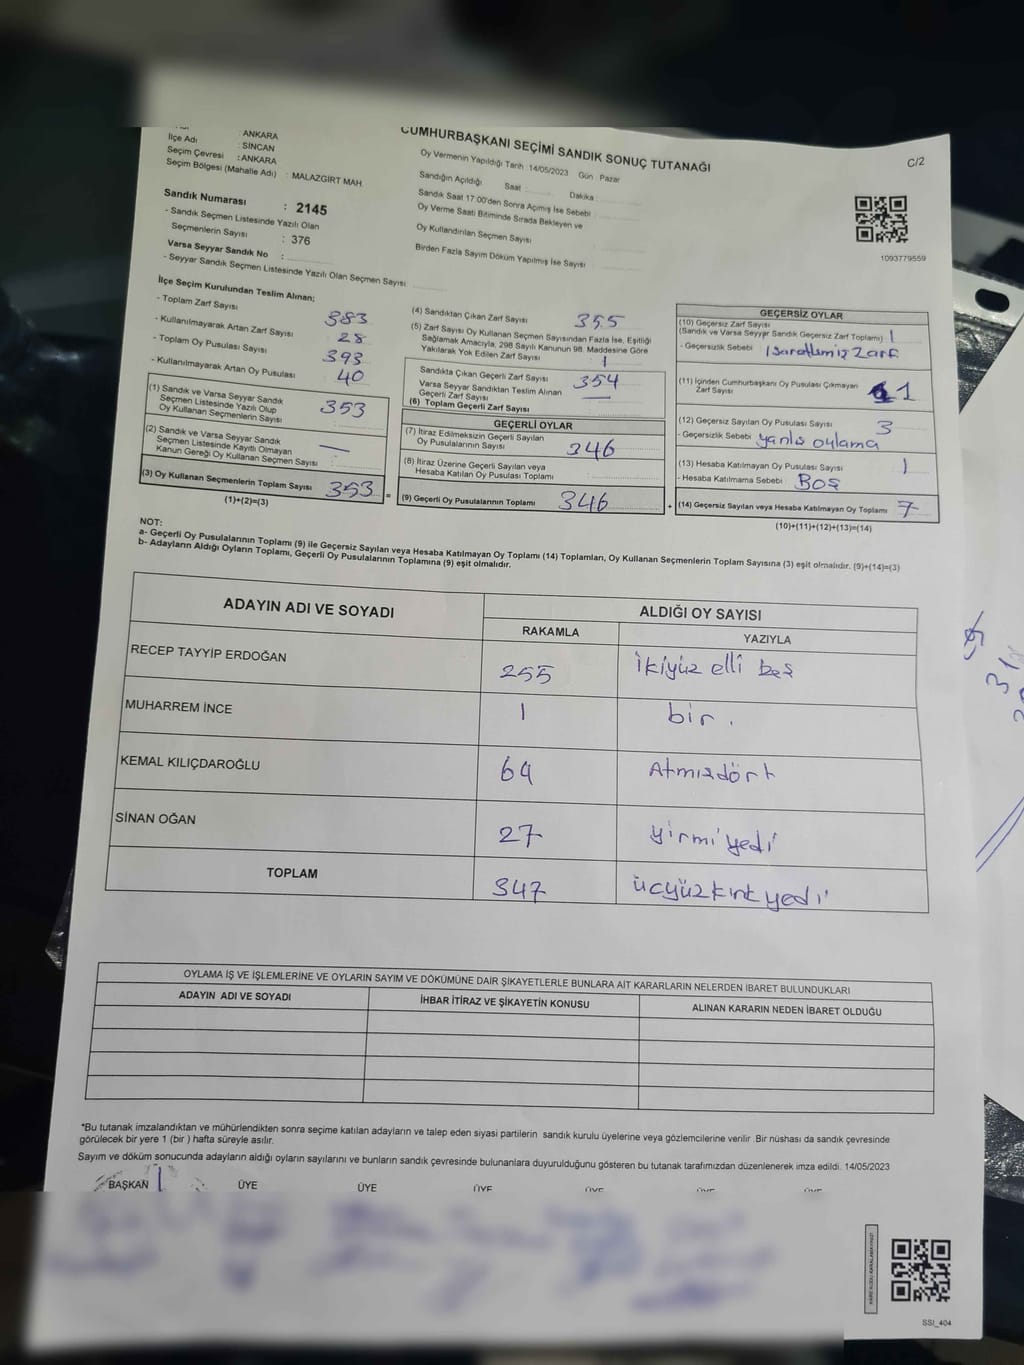 CUMHURBAŞKANI SEÇİMİ SANDIK SONUÇ TUTANAĞI
C/2
: ANKARA
İlçe Adı : SİNCAN
Seçim Çevresi : ANKARA
Seçim Bölgesi (Mahalle Adı) : MALAZGİRT MAH.
Sandık Numarası : 2145
- Sandık Seçmen Listesinde Yazılı Olan
Seçmenlerin Sayısı : 376
Varsa Seyyar Sandık No :
- Seyyar Sandık Seçmen Listesinde Yazılı Olan Seçmen Sayısı
Oy Vermenin Yapıldığı Tarih : 14/05/2023 Gün : Pazar
Sandığın Açıldığı Saat Dakika
Sandık Saat 17:00'den Sonra Açılmış İse Sebebi
Oy Verme Saati Bitiminde Sırada Bekleyen ve
Oy Kullandırılan Seçmen Sayısı
Birden Fazla Sayım Döküm Yapılmış İse Sayısı
1093779559
İlçe Seçim Kurulundan Teslim Alınan;
- Toplam Zarf Sayısı 383
- Kullanılmayarak Artan Zarf Sayısı 28
- Toplam Oy Pusulası Sayısı 393
- Kullanılmayarak Artan Oy Pusulası 40
(1) Sandık ve Varsa Seyyar Sandık
Seçmen Listesinde Yazılı Olup
Oy Kullanan Seçmenlerin Sayısı 353
(2) Sandık ve Varsa Seyyar Sandık
Seçmen Listesinde Kayıtlı Olmayan
Kanun Gereği Oy Kullanan Seçmen Sayısı : —
(3) Oy Kullanan Seçmenlerin Toplam Sayısı 353
(1)+(2)=(3)
(4) Sandıktan Çıkan Zarf Sayısı 355
(5) Zarf Sayısı Oy Kullanan Seçmen Sayısından Fazla İse, Eşitliği
Sağlamak Amacıyla, 298 Sayılı Kanunun 98. Maddesine Göre
Yakılarak Yok Edilen Zarf Sayısı 1
Sandıkta Çıkan Geçerli Zarf Sayısı 354
Varsa Seyyar Sandıktan Teslim Alınan
Geçerli Zarf Sayısı —
(6) Toplam Geçerli Zarf Sayısı
GEÇERLİ OYLAR
(7) İtiraz Edilmeksizin Geçerli Sayılan
Oy Pusulalarının Sayısı 346
(8) İtiraz Üzerine Geçerli Sayılan veya
Hesaba Katılan Oy Pusulası Toplamı
= (9) Geçerli Oy Pusulalarının Toplamı 346
GEÇERSİZ OYLAR
(10) Geçersiz Zarf Sayısı
(Sandık ve Varsa Seyyar Sandık Geçersiz Zarf Toplamı) 1
- Geçersizlik Sebebi İşaretlemiş Zarf
(11) İçinden Cumhurbaşkanı Oy Pusulası Çıkmayan
Zarf Sayısı 1
(12) Geçersiz Sayılan Oy Pusulası Sayısı 3
- Geçersizlik Sebebi yanlış oylama
(13) Hesaba Katılmayan Oy Pusulası Sayısı 1
- Hesaba Katılmama Sebebi BOŞ
+ (14) Geçersiz Sayılan veya Hesaba Katılmayan Oy Toplamı 7
(10)+(11)+(12)+(13)=(14)
NOT:
a- Geçerli Oy Pusulalarının Toplamı (9) ile Geçersiz Sayılan veya Hesaba Katılmayan Oy Toplamı (14) Toplamları, Oy Kullanan Seçmenlerin Toplam Sayısına (3) eşit olmalıdır. (9)+(14)=(3)
b- Adayların Aldığı Oyların Toplamı, Geçerli Oy Pusulalarının Toplamına (9) eşit olmalıdır.
ADAYIN ADI VE SOYADI ALDIĞI OY SAYISI
RAKAMLA YAZIYLA
RECEP TAYYİP ERDOĞAN 255 İkiyüz elli beş
MUHARREM İNCE 1 bir.
KEMAL KILIÇDAROĞLU 64 Atmışdört
SİNAN OĞAN 27 yirmi yedi
TOPLAM 347 üçyüzkırk yedi
OYLAMA İŞ VE İŞLEMLERİNE VE OYLARIN SAYIM VE DÖKÜMÜNE DAİR ŞİKAYETLERLE BUNLARA AİT KARARLARIN NELERDEN İBARET BULUNDUKLARI
ADAYIN ADI VE SOYADI İHBAR İTİRAZ VE ŞİKAYETİN KONUSU ALINAN KARARIN NEDEN İBARET OLDUĞU
*Bu tutanak imzalandıktan ve mühürlendikten sonra seçime katılan adayların ve talep eden siyasi partilerin sandık kurulu üyelerine veya gözlemcilerine verilir .Bir nüshası da sandık çevresinde
görülecek bir yere 1 (bir ) hafta süreyle asılır.
Sayım ve döküm sonucunda adayların aldığı oyların sayılarını ve bunların sandık çevresinde bulunanlara duyurulduğunu gösteren bu tutanak tarafımızdan düzenlenerek imza edildi. 14/05/2023
BAŞKAN ÜYE ÜYE ÜYE ÜYE ÜYE ÜYE
SSI_404